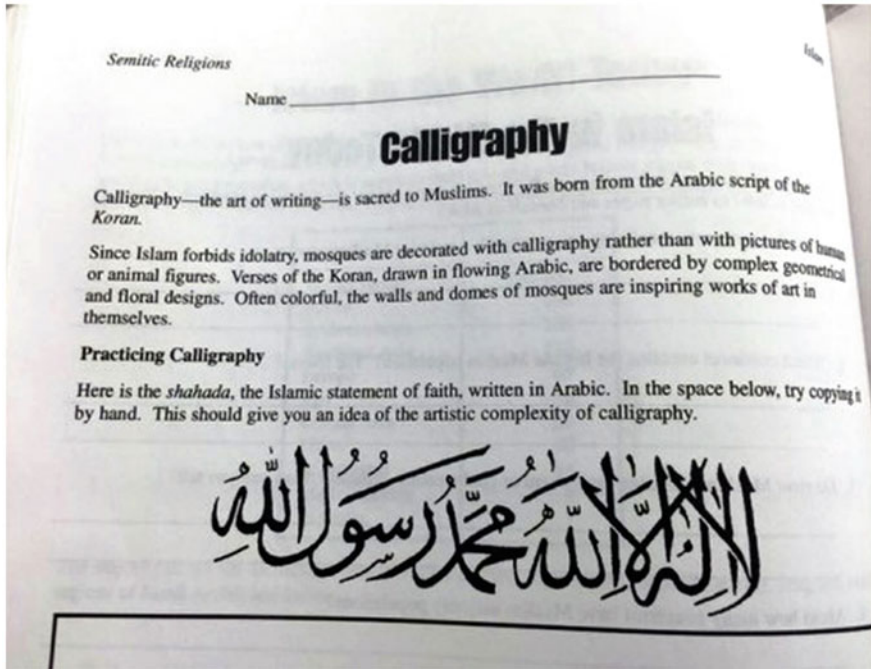 Semitic Religions
Islam
Name
Calligraphy
Calligraphy—the art of writing—is sacred to Muslims. It was born from the Arabic script of the
Koran.
Since Islam forbids idolatry, mosques are decorated with calligraphy rather than with pictures of human
or animal figures. Verses of the Koran, drawn in flowing Arabic, are bordered by complex geometrical
and floral designs. Often colorful, the walls and domes of mosques are inspiring works of art in
themselves.
Practicing Calligraphy
Here is the shahada, the Islamic statement of faith, written in Arabic. In the space below, try copying it
by hand. This should give you an idea of the artistic complexity of calligraphy.
لا إله إلا الله محمد رسول الله